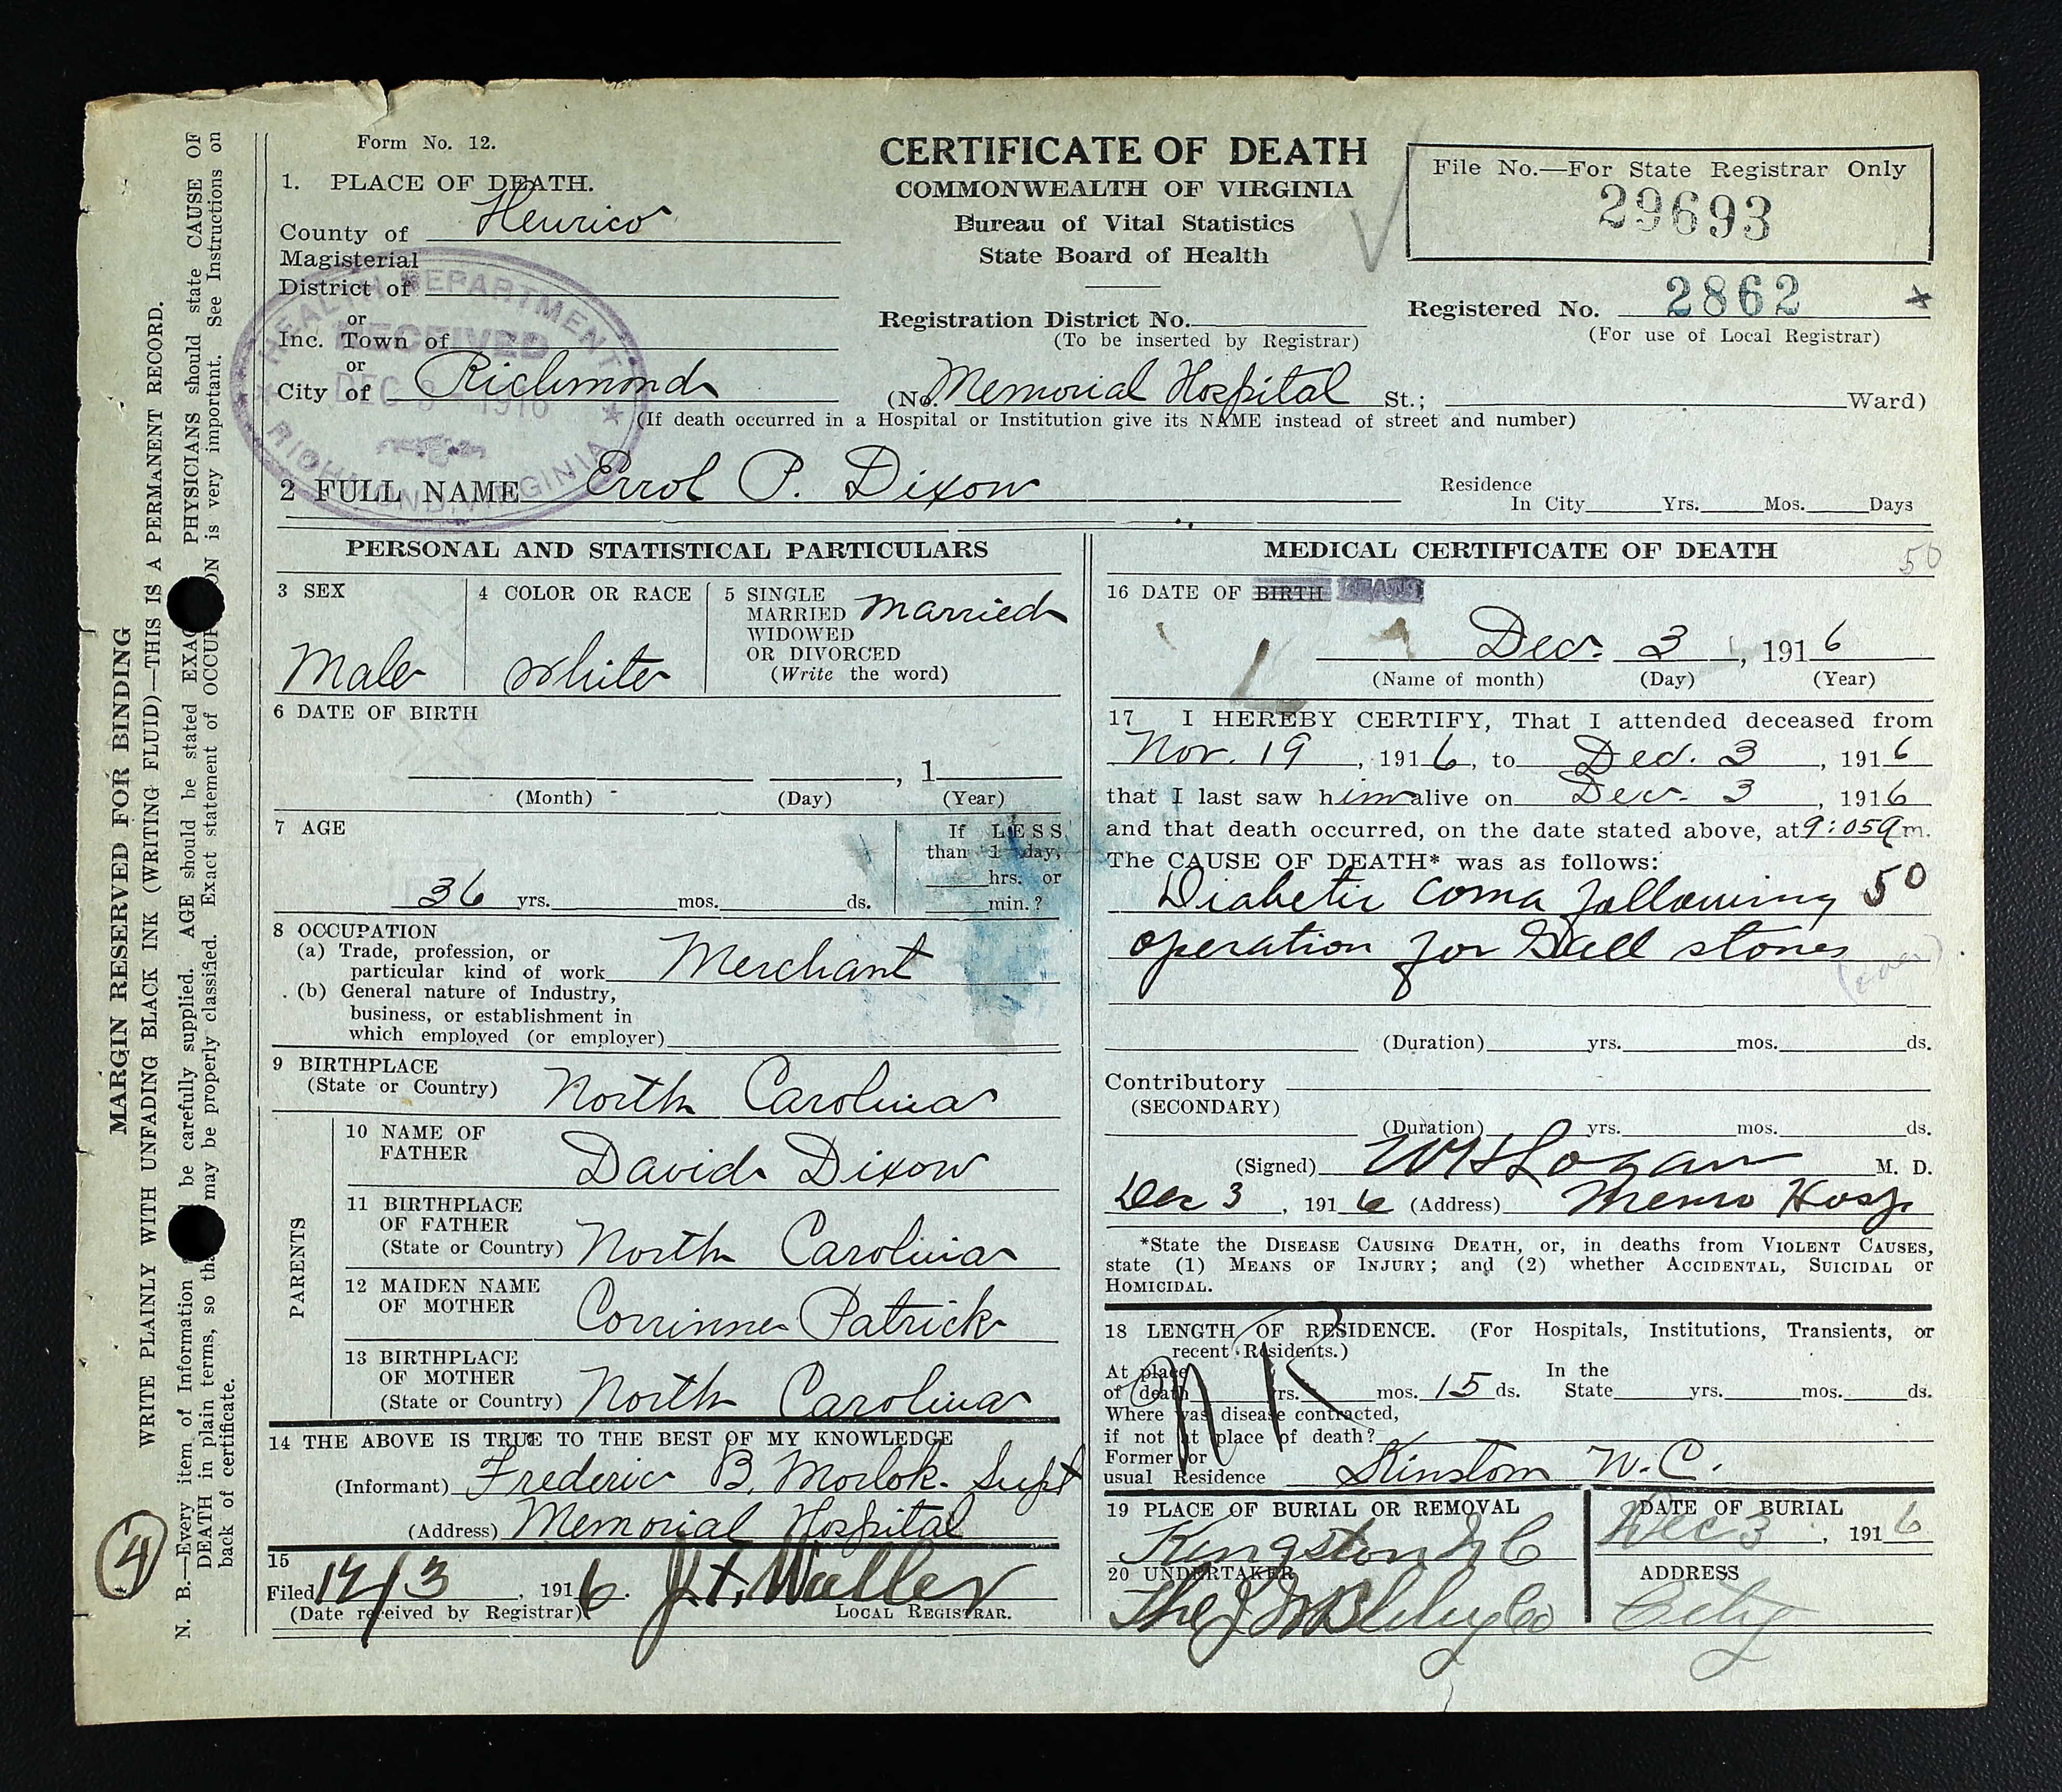 Form No. 12.
1. PLACE OF DEATH.
County of Henrico
Magisterial
District of
or
Inc. Town of
or
City of Richmond
HEALTH DEPARTMENT
RECEIVED
DEC 1916
RICHMOND, VIRGINIA
CERTIFICATE OF DEATH
COMMONWEALTH OF VIRGINIA
Bureau of Vital Statistics
State Board of Health
Registration District No.
(To be inserted by Registrar)
File No.—For State Registrar Only
29693
Registered No. 2862
(For use of Local Registrar)
(No. Memorial Hospital St.; Ward)
(If death occurred in a Hospital or Institution give its NAME instead of street and number)
2 FULL NAME Errol P. Dixon
Residence
In City Yrs. Mos. Days
PERSONAL AND STATISTICAL PARTICULARS
3 SEX
Male
4 COLOR OR RACE
White
5 SINGLE
MARRIED
WIDOWED
OR DIVORCED
(Write the word)
Married
6 DATE OF BIRTH
, 1
(Month) (Day) (Year)
7 AGE
36 yrs. mos. ds.
If LESS
than 1 day,
hrs. or
min.?
8 OCCUPATION
(a) Trade, profession, or
particular kind of work Merchant
(b) General nature of Industry,
business, or establishment in
which employed (or employer)
9 BIRTHPLACE
(State or Country) North Carolina
PARENTS
10 NAME OF
FATHER David Dixon
11 BIRTHPLACE
OF FATHER
(State or Country) North Carolina
12 MAIDEN NAME
OF MOTHER Corrinne Patrick
13 BIRTHPLACE
OF MOTHER
(State or Country) North Carolina
14 THE ABOVE IS TRUE TO THE BEST OF MY KNOWLEDGE
(Informant) Frederic B. Morlok. Supt
(Address) Memorial Hospital
15
Filed 12/3, 1916.
(Date received by Registrar) LOCAL REGISTRAR.
MEDICAL CERTIFICATE OF DEATH
50
16 DATE OF BIRTH DEATH
Dec. 3, 1916
(Name of month) (Day) (Year)
17 I HEREBY CERTIFY, That I attended deceased from
Nov. 19, 1916, to Dec. 3, 1916
that I last saw him alive on Dec. 3, 1916
and that death occurred, on the date stated above, at 9:05 a m.
The CAUSE OF DEATH* was as follows:
Diabetic coma following 50
operation for Gall stones
(over)
(Duration) yrs. mos. ds.
Contributory
(SECONDARY)
(Duration) yrs. mos. ds.
(Signed) M. D.
Dec 3, 1916 (Address) Memo Hosp.
*State the DISEASE CAUSING DEATH, or, in deaths from VIOLENT CAUSES,
state (1) MEANS OF INJURY; and (2) whether ACCIDENTAL, SUICIDAL or
HOMICIDAL.
18 LENGTH OF RESIDENCE. (For Hospitals, Institutions, Transients, or
recent Residents.)
NR
At place
of death yrs. mos. 15 ds.
In the
State yrs. mos. ds.
Where was disease contracted,
if not at place of death?
Former or
usual Residence Kinston N.C.
19 PLACE OF BURIAL OR REMOVAL
Kingston N C
DATE OF BURIAL
Dec 3, 1916
20 UNDERTAKER
The
Co
ADDRESS
City
MARGIN RESERVED FOR BINDING
WRITE PLAINLY WITH UNFADING BLACK INK (WRITING FLUID)—THIS IS A PERMANENT RECORD.
N. B.—Every item of Information be carefully supplied. AGE should be stated EXAC PHYSICIANS should state CAUSE OF
DEATH in plain terms, so tha may be properly classified. Exact statement of OCCUP ON is very important. See Instructions on
back of certificate.
4